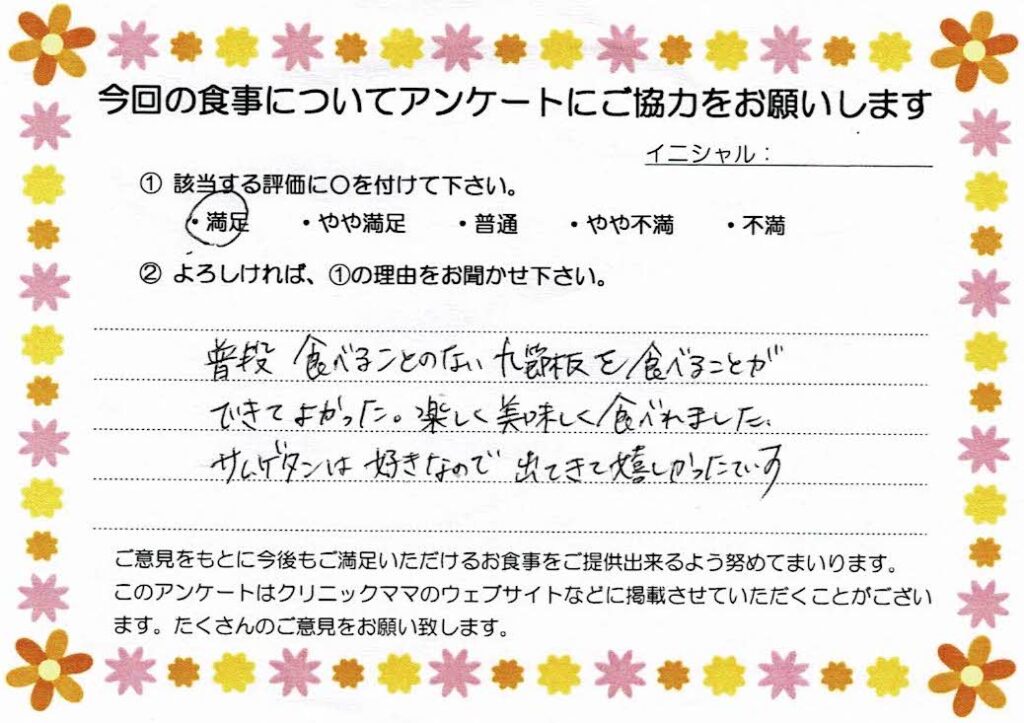 今回の食事についてアンケートにご協力をお願いします
イニシャル：
① 該当する評価に○を付けて下さい。
・満足 ・やや満足 ・普通 ・やや不満 ・不満
② よろしければ、①の理由をお聞かせ下さい。
普段 食べることのない 九節板を食べることが
できてよかった。楽しく美味しく食べれました、
サムゲタンは 好きなので 出てきて嬉しかったです
ご意見をもとに今後もご満足いただけるお食事をご提供出来るよう努めてまいります。
このアンケートはクリニックママのウェブサイトなどに掲載させていただくことがござい
ます。たくさんのご意見をお願い致します。